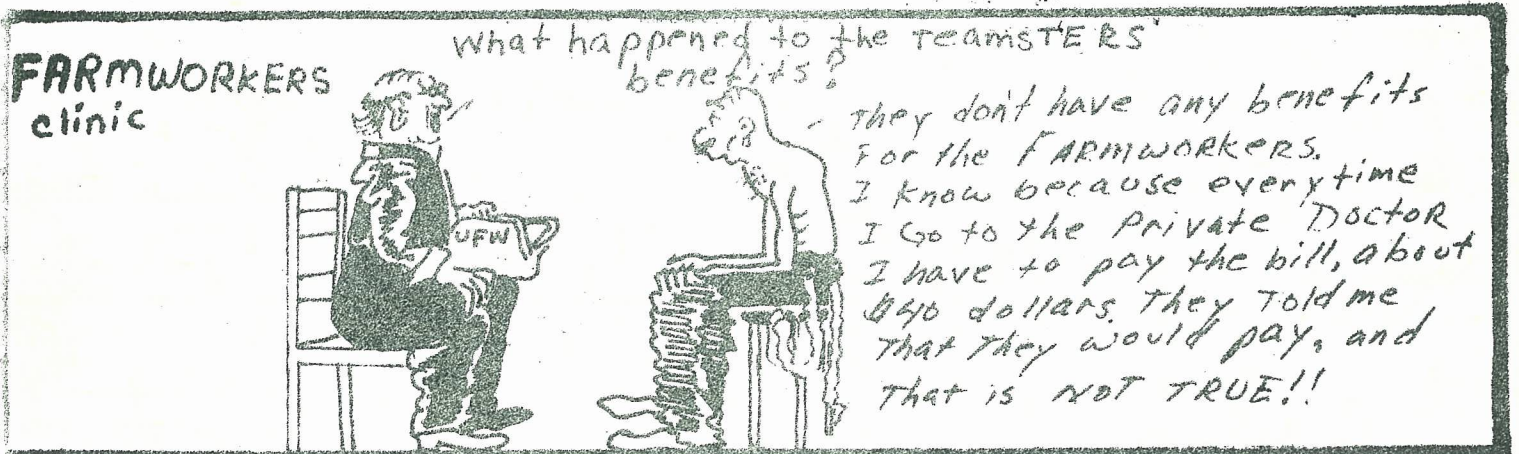 FARMWORKERS
clinic
What happened to the TEAMSTERS
benefits?
UFW
They don't have any benefits
For the FARMWORKERS.
I know because everytime
I Go to the Private DoctoR
I have to pay the bill, about
$40 dollars. They Told me
That They would pay, and
That is NOT TRUE!!